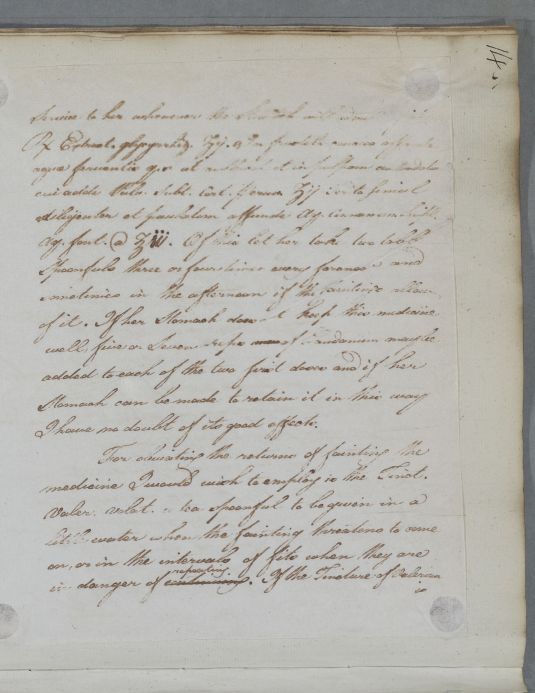 14.
Service to her whenever the Stomach will
℞ Extract. glycyrrhiz. ʒij. In frustula
aquæ ferventis q.s. ut et in pulpam
cui adde Pulv. Subt. Cort. Peruv. ℥ij tere simul
diligenter et paulatim affunde Aq. cinnamom.
Aq. font. @ ℥iii. Of this let her take two table
Spoonfuls three or four times every forenoon and
sometimes in the afternoon if the allow
of it. If her Stomach does not keep this medicine
well, five or Seven of Laudanum may be
added to each of the two first doses and if her
Stomach can be made to retain it in this way
I have no doubt of its good effects.
For obviating the returns of fainting the
medicine I would wish to employ is the Tinct.
Valer. Volat. a tea spoonful to be given in a
little water when the fainting threatens to come
on, or in the intervals of fits when they are
in danger of repeating. If the Tincture of Valerian